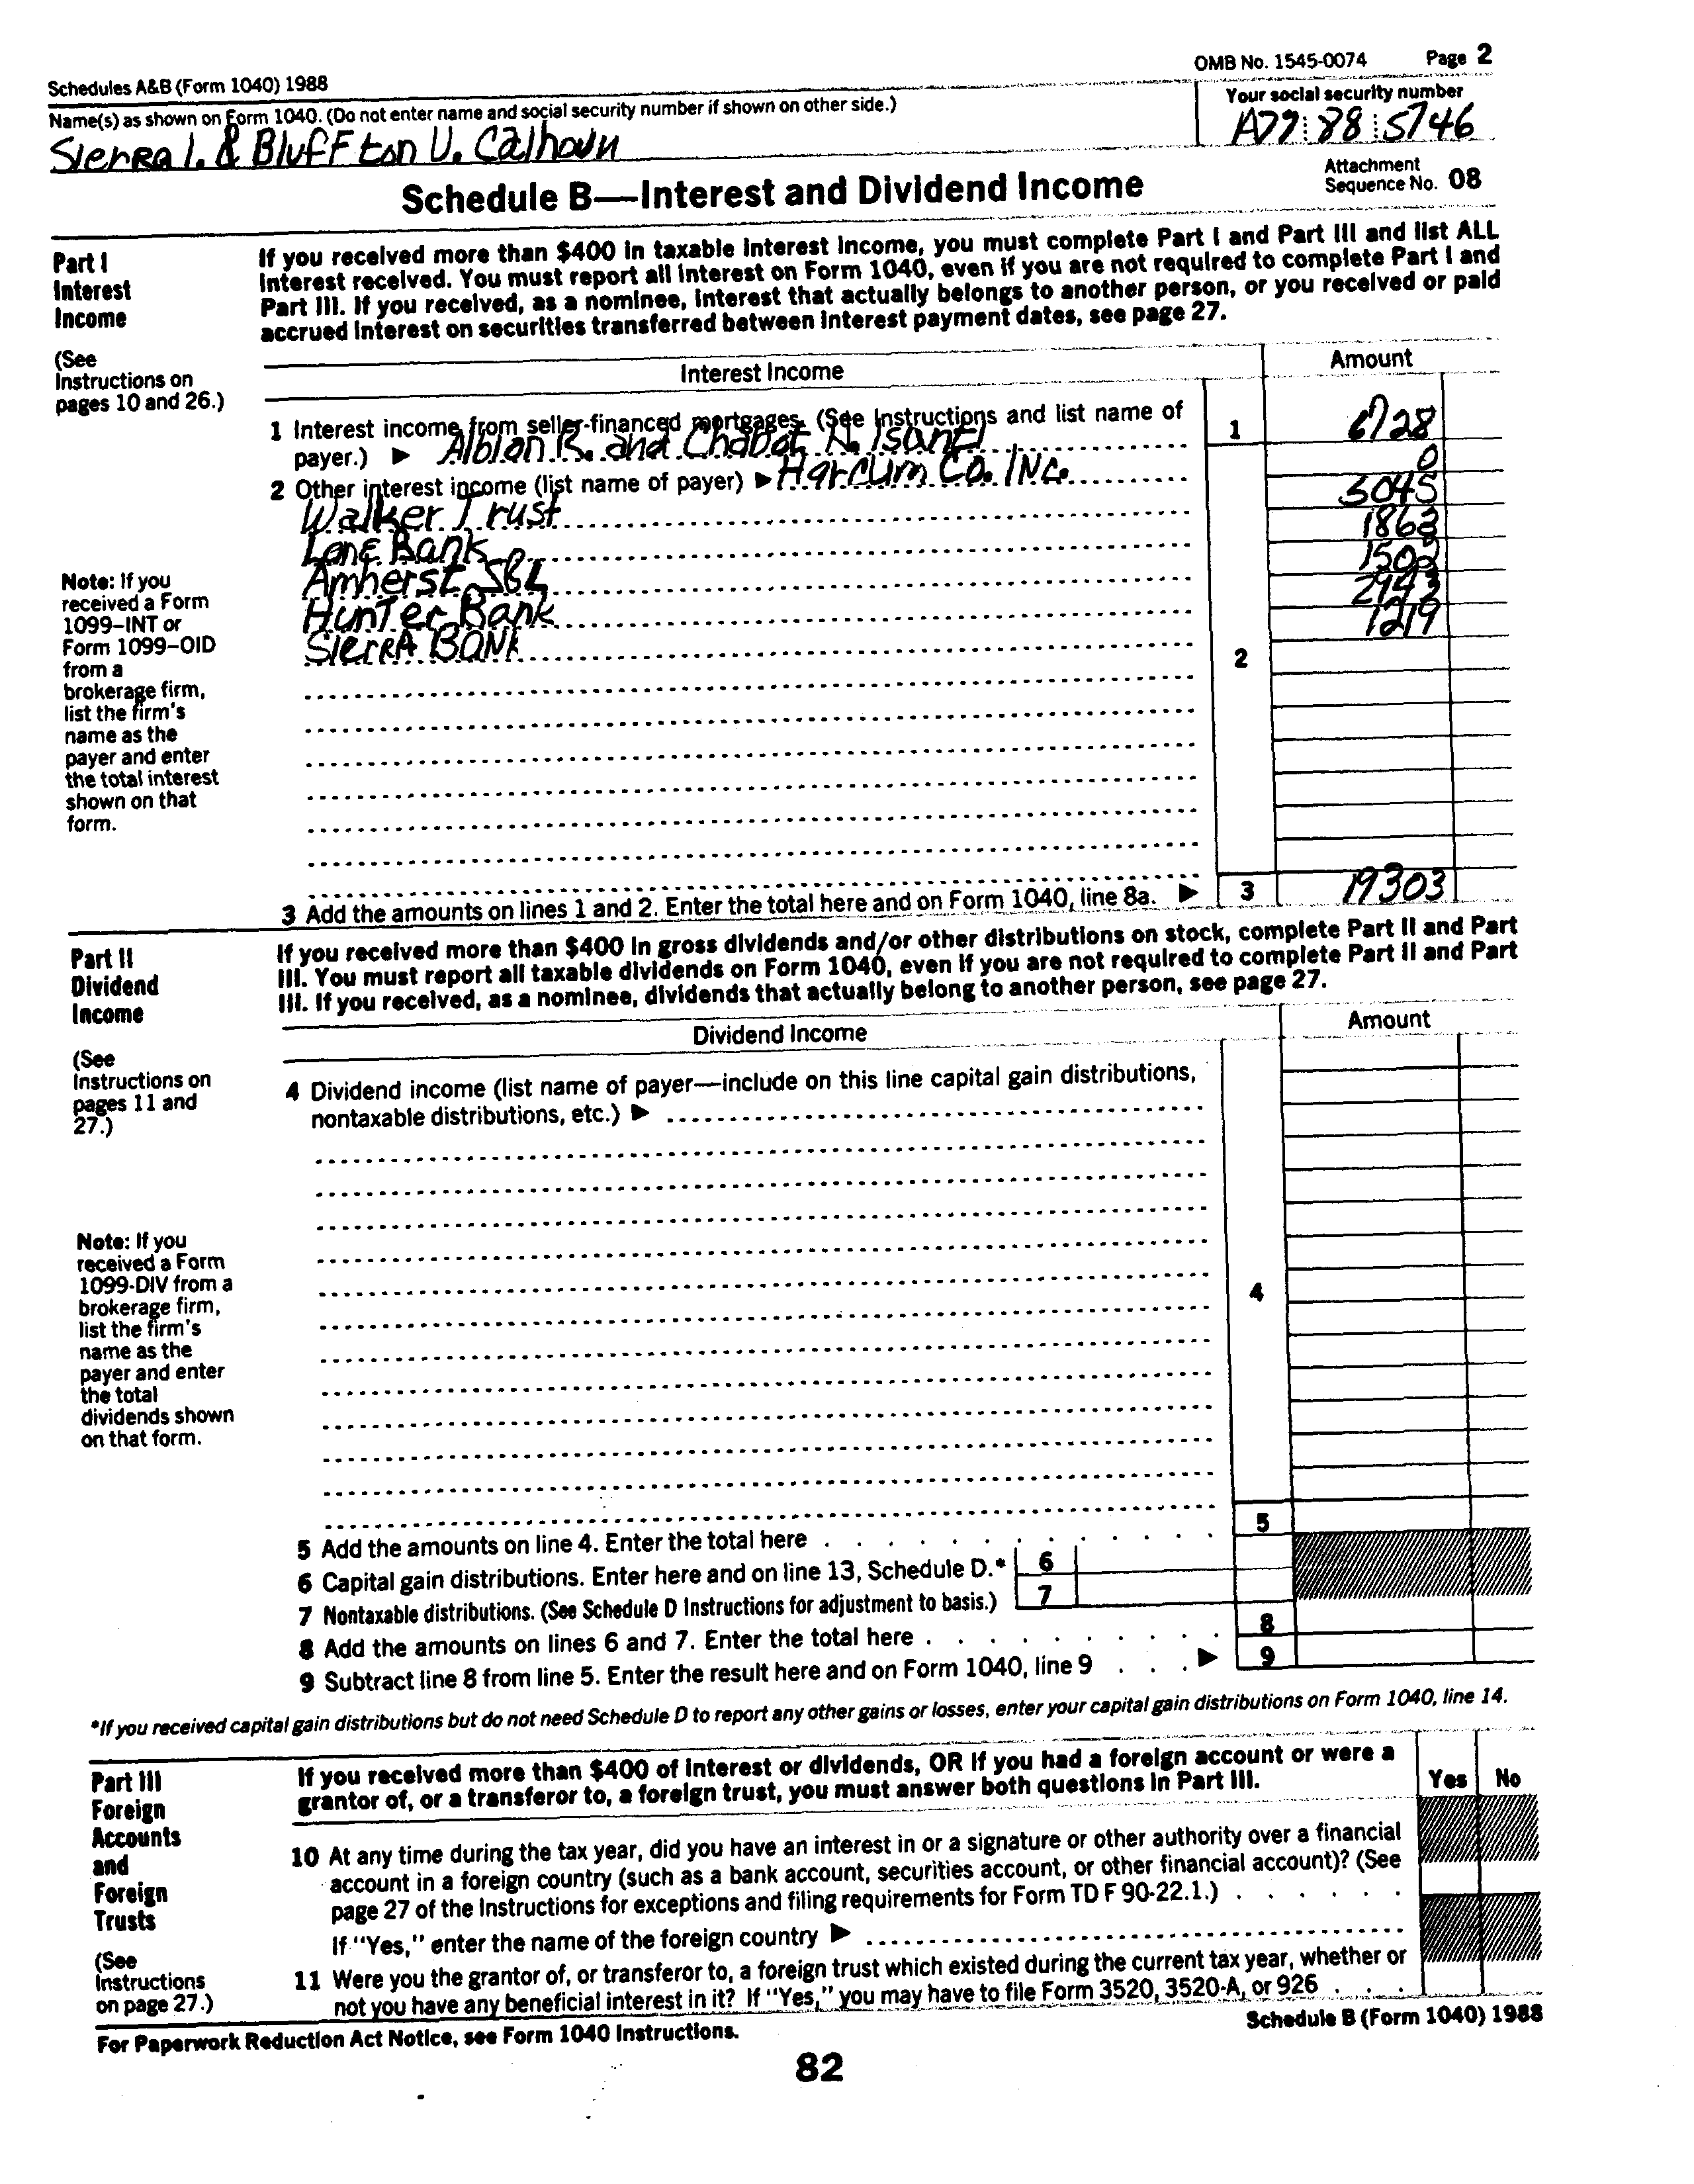 Schedules A&B (Form 1040) 1988
OMB No. 1545-0074 Page 2
Name(s) as shown on Form 1040. (Do not enter name and social security number if shown on other side.)
Your social security number
Sierra I. & Bluffton U. Calhoun
A77 88 5746
Schedule B—Interest and Dividend Income
Attachment
Sequence No. 08
Part I
Interest
Income
(See
Instructions on
pages 10 and 26.)
If you received more than $400 in taxable interest income, you must complete Part I and Part III and list ALL
interest received. You must report all interest on Form 1040, even if you are not required to complete Part I and
Part III. If you received, as a nominee, interest that actually belongs to another person, or you received or paid
accrued interest on securities transferred between interest payment dates, see page 27.
Interest Income
Amount
1 Interest income from seller-financed mortgages. (See Instructions and list name of
payer.) ▶ Albion R. and Chabot N. Isanti
1 6728
2 Other interest income (list name of payer) ▶ Harcum Co. Inc.
0
Walker Trust
5045
Lane Bank
1863
Amherst S&L
1503
Hunter Bank
2943
Sierra Bank
1219
2
Note: If you
received a Form
1099–INT or
Form 1099–OID
from a
brokerage firm,
list the firm's
name as the
payer and enter
the total interest
shown on that
form.
3 Add the amounts on lines 1 and 2. Enter the total here and on Form 1040, line 8a. ▶ 3 19303
Part II
Dividend
Income
(See
Instructions on
pages 11 and
27.)
If you received more than $400 in gross dividends and/or other distributions on stock, complete Part II and Part
III. You must report all taxable dividends on Form 1040, even if you are not required to complete Part II and Part
III. If you received, as a nominee, dividends that actually belong to another person, see page 27.
Dividend Income
Amount
4 Dividend income (list name of payer—include on this line capital gain distributions,
nontaxable distributions, etc.) ▶
4
Note: If you
received a Form
1099-DIV from a
brokerage firm,
list the firm's
name as the
payer and enter
the total
dividends shown
on that form.
5 Add the amounts on line 4. Enter the total here 5
6 Capital gain distributions. Enter here and on line 13, Schedule D.* 6
7 Nontaxable distributions. (See Schedule D Instructions for adjustment to basis.) 7
8 Add the amounts on lines 6 and 7. Enter the total here 8
9 Subtract line 8 from line 5. Enter the result here and on Form 1040, line 9 ▶ 9
*If you received capital gain distributions but do not need Schedule D to report any other gains or losses, enter your capital gain distributions on Form 1040, line 14.
Part III
Foreign
Accounts
and
Foreign
Trusts
(See
Instructions
on page 27.)
If you received more than $400 of interest or dividends, OR if you had a foreign account or were a
grantor of, or a transferor to, a foreign trust, you must answer both questions in Part III.
Yes No
10 At any time during the tax year, did you have an interest in or a signature or other authority over a financial
account in a foreign country (such as a bank account, securities account, or other financial account)? (See
page 27 of the Instructions for exceptions and filing requirements for Form TD F 90-22.1.)
If "Yes," enter the name of the foreign country ▶
11 Were you the grantor of, or transferor to, a foreign trust which existed during the current tax year, whether or
not you have any beneficial interest in it? If "Yes," you may have to file Form 3520, 3520-A, or 926
For Paperwork Reduction Act Notice, see Form 1040 Instructions.
Schedule B (Form 1040) 1988
82